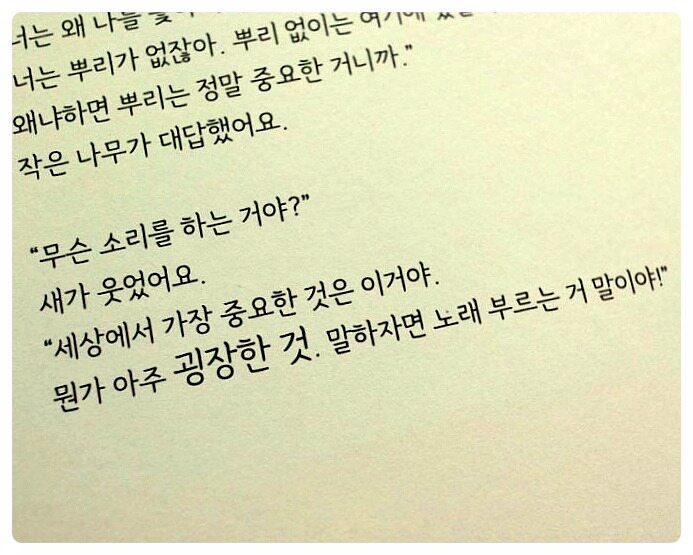 너는 왜 나를
너는 뿌리가 없잖아. 뿌리 없이는 여기에
왜냐하면 뿌리는 정말 중요한 거니까.”
작은 나무가 대답했어요.
“무슨 소리를 하는 거야?”
새가 웃었어요.
“세상에서 가장 중요한 것은 이거야.
뭔가 아주 굉장한 것. 말하자면 노래 부르는 거 말이야!”